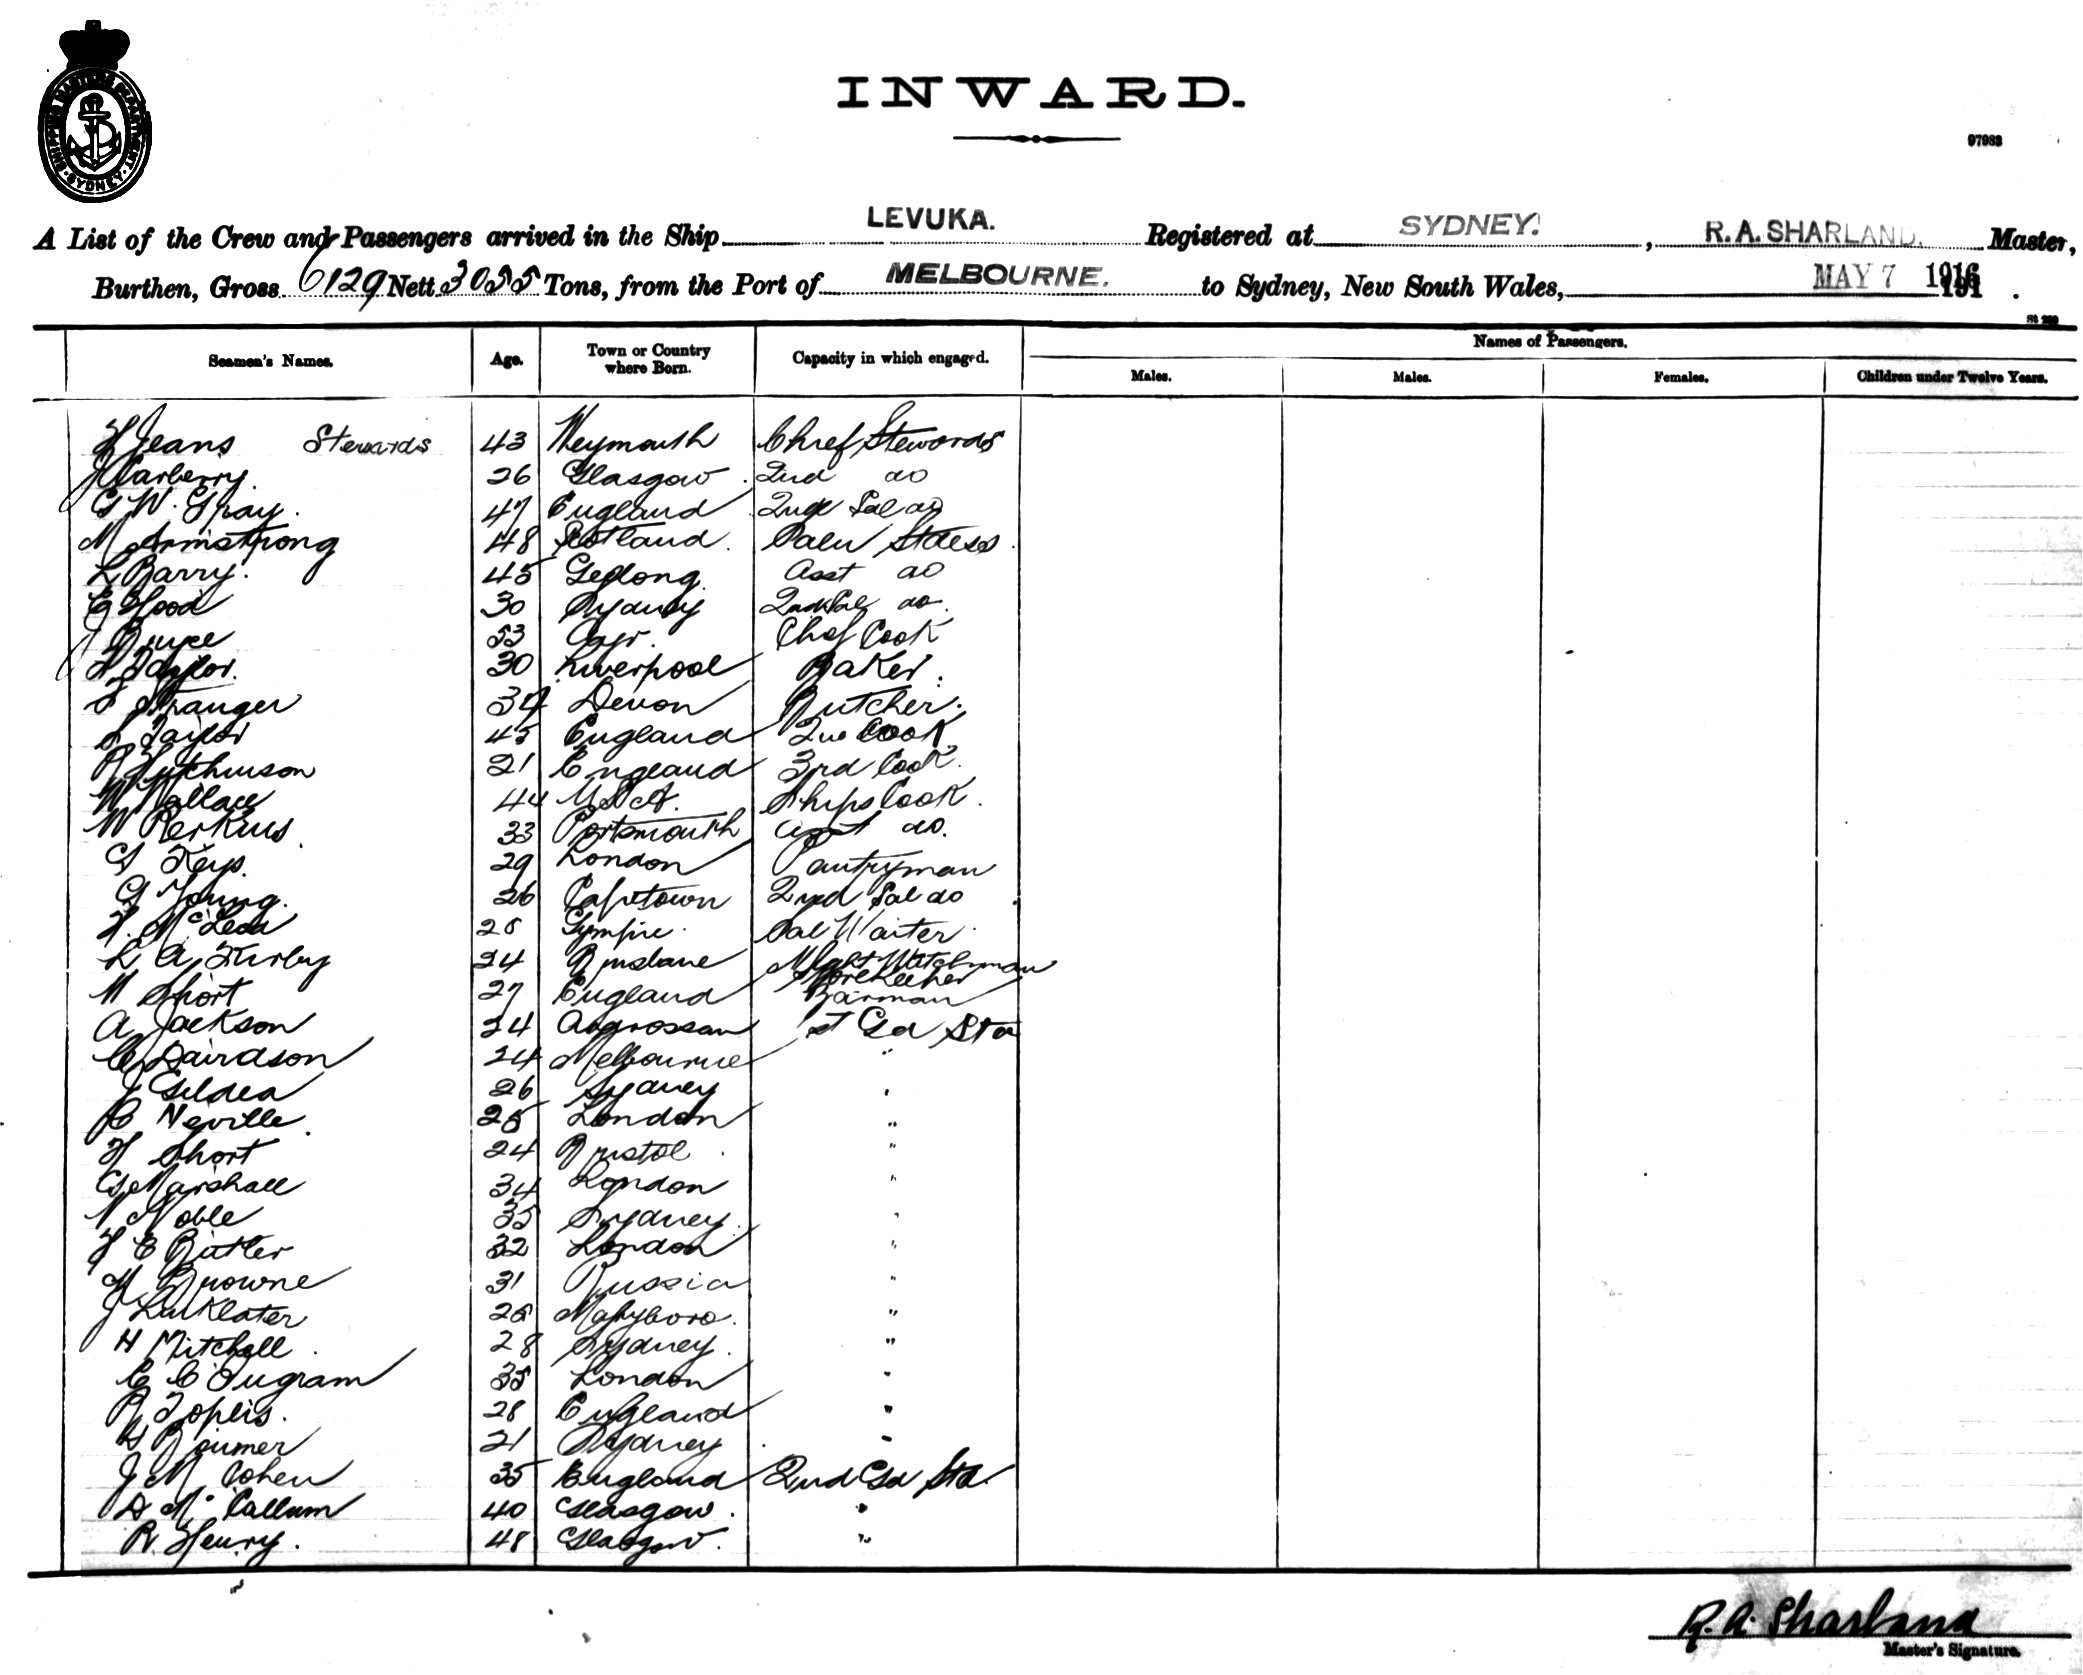 SHIPPING MASTERS DEPARTMENT SYDNEY
INWARD.
97983
A List of the Crew and Passengers arrived in the Ship LEVUKA. Registered at SYDNEY. , R. A. SHARLAND. Master,
Burthen, Gross 6129 Nett 3055 Tons, from the Port of MELBOURNE. to Sydney, New South Wales, MAY 7 1916 191 .
Seamen's Names. Age. Town or Country where Born. Capacity in which engaged. Names of Passengers.
Males. Males. Females. Children under Twelve Years.
H Jeans Stewards 43 Weymouth Chief Stewards
J Carberry. 26 Glasgow 2nd do
G W. Gray. 47 England 2nd Sal do
M Armstrong 48 Scotland. Saln Stdess
L Barry. 45 Geelong Asst do
E Hood 30 Sydney 2nd Sal do.
J Bryce 53 Ayr. Chef Cook
Taylor. 30 Liverpool Baker.
Stranger 34 Devon Butcher.
Taylor 45 England 2nd Cook
R Hutchinson 21 England 3rd Cook.
W Wallace 44 USA. Ships Cook.
W Perkins. 33 Portsmouth Asst do.
G Keys. 29 London Pantryman
G Young. 26 Capetown 2nd Sal do
H. McLeod 28 Gympie Sal Waiter
L A Kirby 24 Brisbane Night Watchman
M Short 27 England Storekeeper Barman
A Jackson 24 Ardrossan st Gd Std
C Davidson 24 Melbourne "
J Gildea 26 Sydney "
C Neville. 25 London "
H Short 24 Bristol "
G Marshall 34 London "
N Noble 35 Sydney "
H C Butler 32 London "
H Browne 31 Russia "
J Larklater 25 Maryboro. "
H Mitchell. 28 Sydney. "
C C Ingram 35 London "
R Toplis. 28 England "
21 Sydney "
J M Cohen 35 England 2nd Gd Std.
D McCallum 40 Glasgow. "
R Henry. 48 Glasgow. "
R. A. Sharland
Master's Signature.